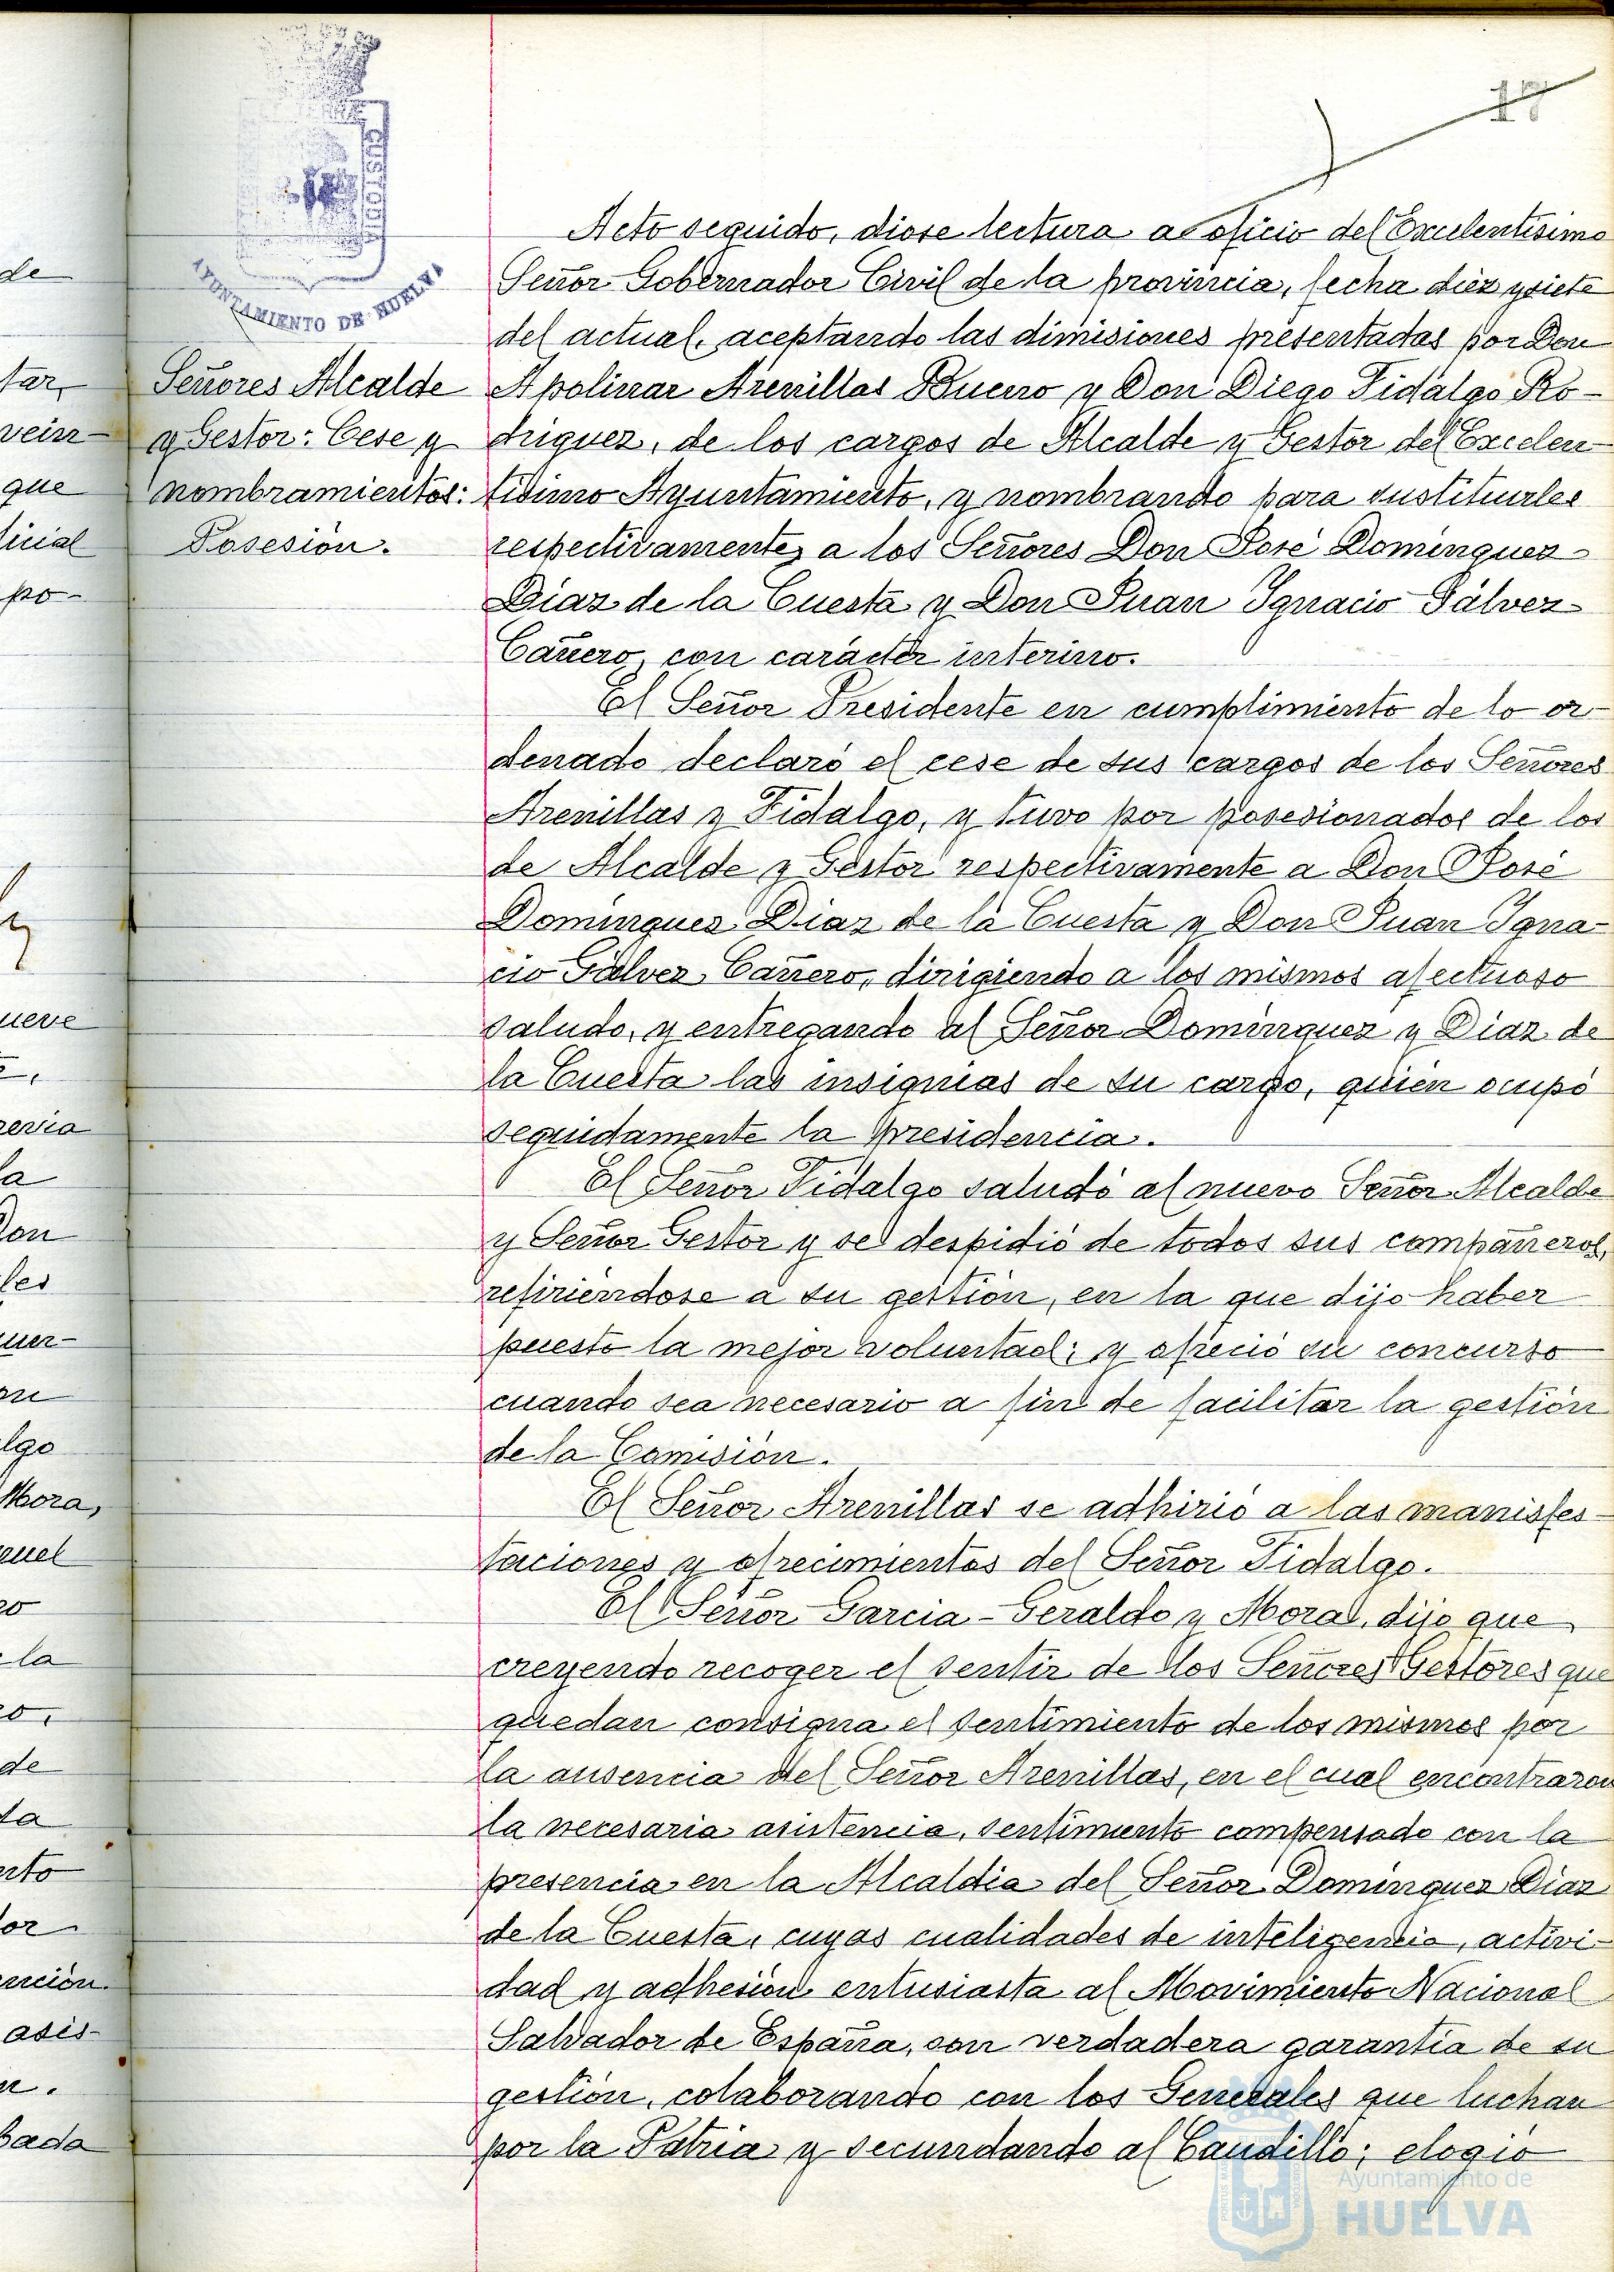 17
CUSTODIA
AYUNTAMIENTO DE HUELVA
Señores Alcalde
y Gestor: Cese y
nombramientos:
Posesión.
Acto seguido, diose lectura a oficio del Excelentísimo
Señor Gobernador Civil de la provincia, fecha diez y siete
del actual, aceptando las dimisiones presentadas por Don
Apolinar Arenillas Bueno y Don Diego Fidalgo Ro-
driguez, de los cargos de Alcalde y Gestor del Excelen-
tísimo Ayuntamiento, y nombrando para sustituirles
respectivamente, a los Señores Don José Dominguez
Diaz de la Cuesta y Don Juan Ignacio Gálvez
Cañero, con carácter interino.
El Señor Presidente en cumplimiento de lo or-
denado declaró el cese de sus cargos de los Señores
Arenillas y Fidalgo, y tuvo por posesionados de los
de Alcalde y Gestor respectivamente a Don José
Dominguez Diaz de la Cuesta y Don Juan Igna-
cio Gálvez Cañero, dirigiendo a los mismos afectuoso
saludo, y entregando al Señor Dominguez y Diaz de
la Cuesta las insignias de su cargo, quien ocupó
seguidamente la presidencia.
El Señor Fidalgo saludó al nuevo Señor Alcalde
y Señor Gestor y se despidió de todos sus compañeros,
refiriéndose a su gestión, en la que dijo haber
puesto la mejor voluntad; y ofreció su concurso
cuando sea necesario a fin de facilitar la gestión
de la Comisión.
El Señor Arenillas se adhirió a las manisfes-
taciones y ofrecimientos del Señor Fidalgo.
El Señor Garcia-Geraldo y Mora, dijo que
creyendo recoger el sentir de los Señores Gestores que
quedan consigna el sentimiento de los mismos por
la ausencia del Señor Arenillas, en el cual encontraron
la necesaria asistencia, sentimiento compensado con la
presencia en la Alcaldia del Señor Dominguez Diaz
de la Cuesta, cuyas cualidades de inteligencia, activi-
dad y adhesión entusiasta al Movimiento Nacional
Salvador de España, son verdadera garantia de su
gestión, colaborando con los Generales que luchan
por la Patria y secundando al Caudillo; elogió
Ayuntamiento de
HUELVA